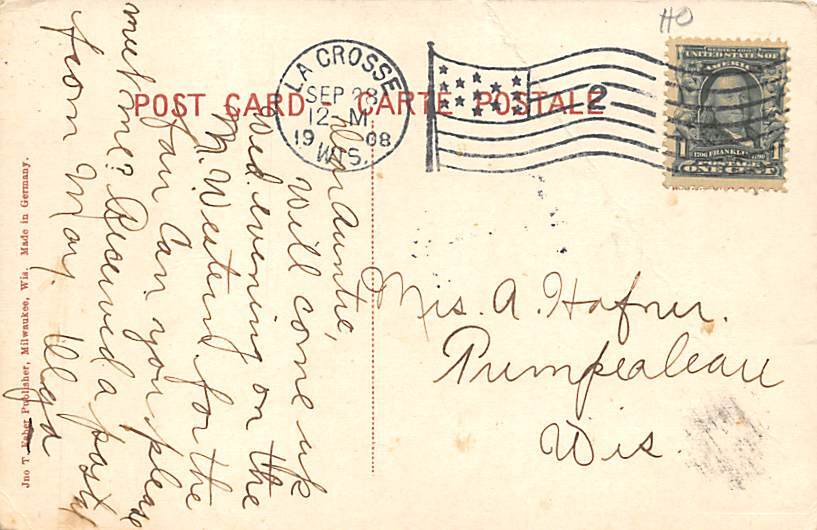 HO
POST CARD - CARTE POSTALE
LA CROSSE
SEP 28
12-M
1908
WIS.
2
SERIES 1902
UNITED STATES OF
AMERICA
1
1706 FRANKLIN 1790
1
POSTAGE
ONE CENT
Dear Auntie,
Will come up
Wed. evening on the
N. Western for the
fair. Can you please
meet me? Received a postal
from May. Olga
Mrs. A. Hafner.
Trempealeau
Wis.
Jno T. Faber Publisher, Milwaukee, Wis. Made in Germany.